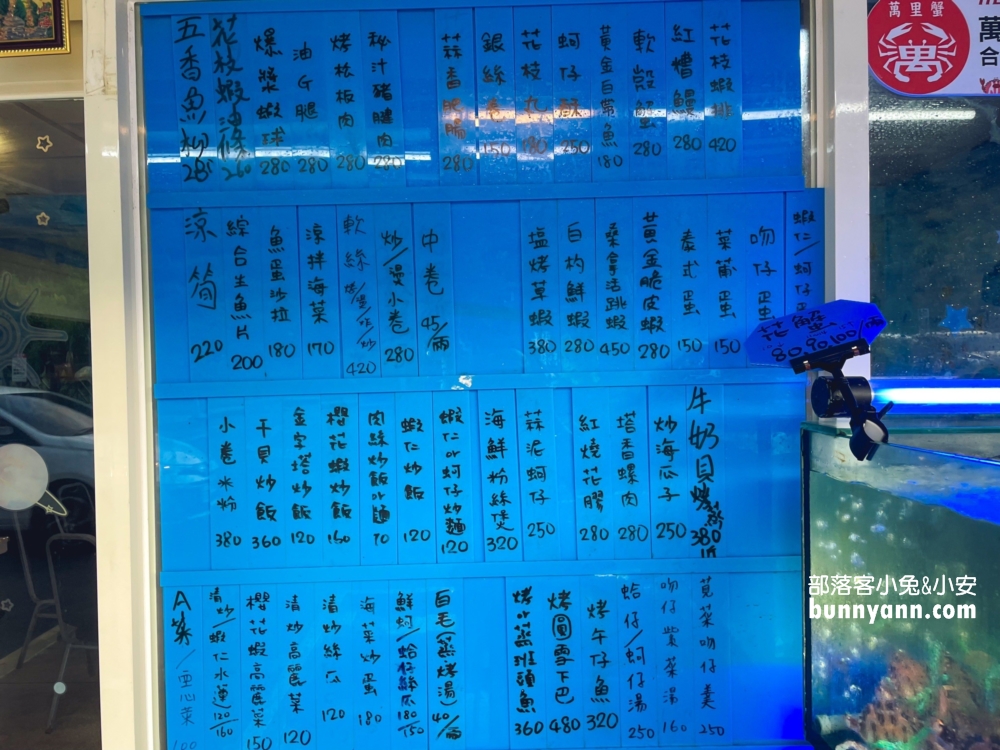 花枝蝦排 420
紅糟鰻 280
軟殼蟹 280
黃金白帶魚 180
蚵仔酥 250
花枝丸 180
銀絲卷 150
蒜香肥腸 280
秘汁豬腱肉 280
烤松板肉 280
油G腿 280
爆漿蝦球 280
花枝蝦油條 260
五香魚柳 280
蝦仁/蚵仔
吻仔蛋
菜脯蛋 150
泰式蛋 150
黃金脆皮蝦 280
桑拿活跳蝦 450
白灼鮮蝦 280
塩烤草蝦 380
中卷 45/兩
炒/燙小卷 280
軟絲 420
涼拌海菜 170
魚蛋沙拉 180
綜合生魚片 200
涼筍 220
牛奶貝烤 380
炒海瓜子 250
塔香螺肉 280
紅燒花膠 280
蒜泥蚵仔 250
海鮮粉絲煲 320
蝦仁or蚵仔炒麵 120
蝦仁炒飯 120
肉絲炒飯or麵 70
櫻花蝦炒飯 150
金字塔炒飯 120
干貝炒飯 360
小卷米粉 380
莧菜吻仔羹 250
吻仔紫菜湯 160
蛤仔/蚵仔湯 250
烤午仔魚 320
烤圓雪下巴 480
烤or蒸班頭魚 360
白毛(蒸烤湯) 40/兩
鮮蚵/蛤仔絲瓜 180/150
海菜炒蛋 180
清炒絲瓜 120
清炒高麗菜 120
櫻花蝦高麗菜 150
清炒/蝦仁水蓮 120/160
A菜/
花蟹
80,90,100/兩
萬里蟹
萬
部落客小兔&小安
bunnyann.com